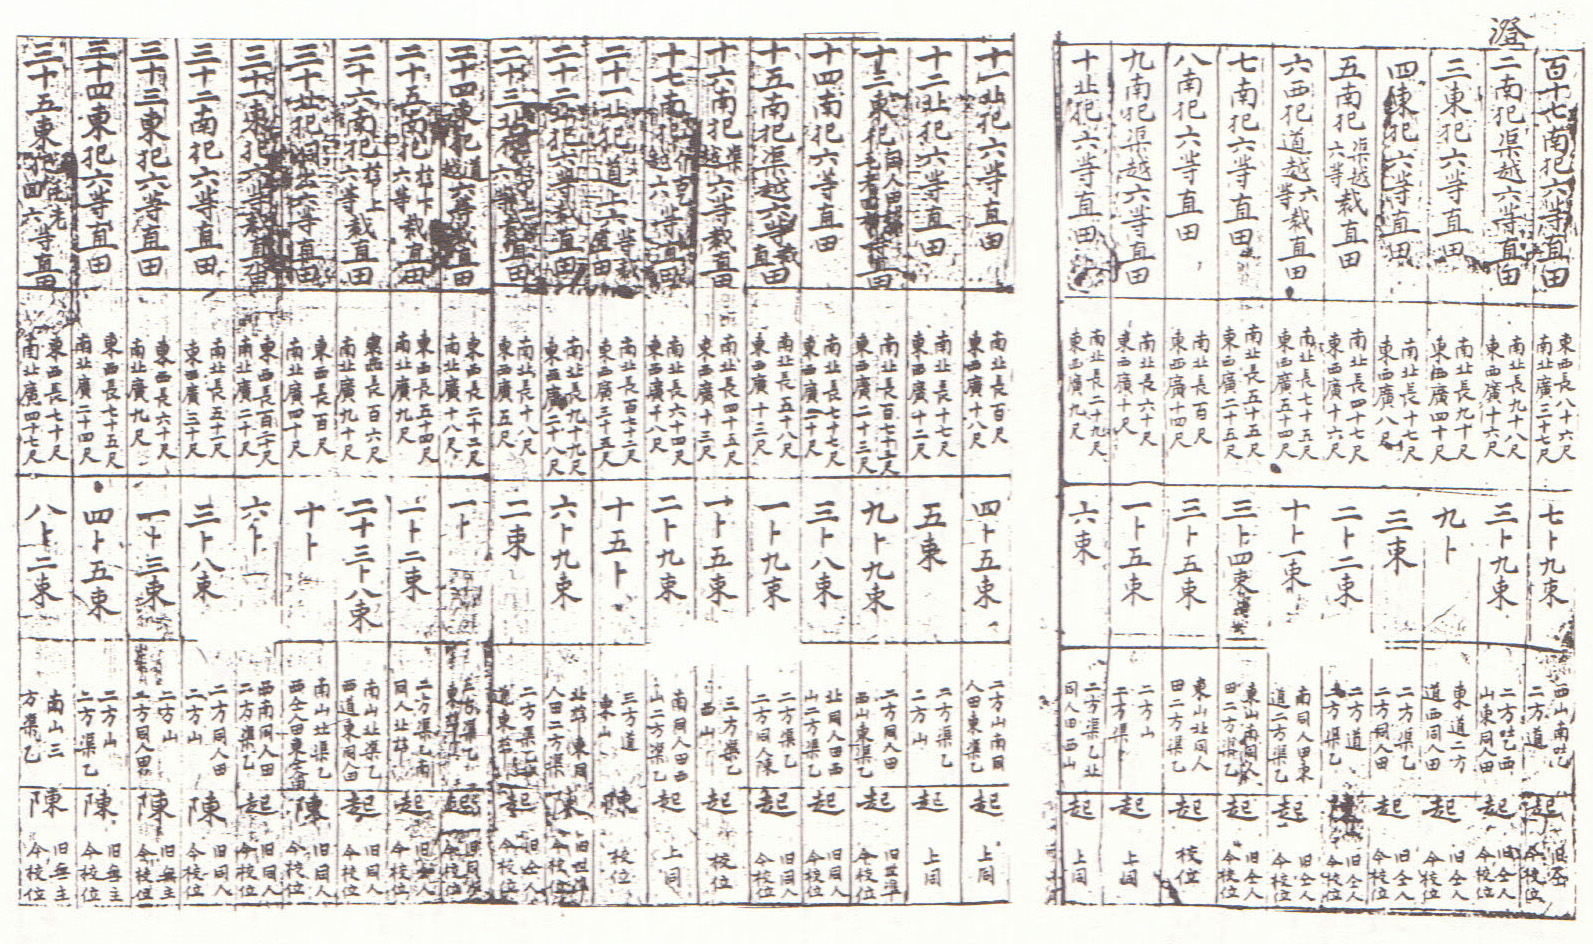 澄
百十七南犯六等直田 東西長八十六尺 南北廣三十七尺 七卜九束 西山南吐 二方道 起 今校位
二南犯渠越六等直田 南北長九十八尺 東西廣十六尺 三卜九束 二方吐西 山東同人田 起 旧仝人 今校位
三東犯六等直田 南北長九十尺 東西廣四十尺 九卜 東道二方 道西同人田 起 旧仝人 今校位
四東犯六等直田 南北長十七尺 東西廣八尺 三束 二方渠乙 二方同人田 起 旧仝人 今校位
五南犯渠越六等裁直田 南北長四十七尺 東西廣十六尺 二卜二束 二方道 二方渠乙 陳 旧仝人 今校位
六西犯道越六等裁直田 南北長七十五尺 東西廣五十四尺 十卜一束 南同人田東 道二方渠乙 起 旧仝人 今校位
七南犯六等直田 南北長五十五尺 東西廣二十五尺 三卜四束 東山南同人 田二方渠乙 起 旧仝人 今校位
八南犯六等直田 南北長百尺 東西廣十四尺 三卜五束 東山北同人 田二方渠乙 起 校位
九南犯渠越六等直田 南北長六十尺 東西廣十尺 一卜五束 二方山 二方渠 起 上同
十北犯六等直田 南北長二十九尺 東西廣九尺 六束 二方渠乙北 同人田西山 起 上同
十一北犯六等直田 南北長百尺 東西廣十八尺 四卜五束 二方山南同 人田東渠乙 起 上同
十二北犯六等直田 南北長十七尺 東西廣十二尺 五束 二方渠乙 二方山 起 上同
十三東犯 等直田 南北長百七十二尺 東西廣二十三尺 九卜九束 二方同人田 西山東渠乙 起 今校位
十四南犯六等直田 南北長七十七尺 東西廣二十尺 三卜八束 北同人田西 山二方渠乙 起 旧同人 今校位
十五南犯渠越六等裁直田 南北長五十八尺 東西廣十三尺 一卜九束 二方渠乙 二方同人 起 旧同人 今校位
十六南犯渠越六等裁直田 南北長四十五尺 東西廣十三尺 一卜五束 三方渠乙 西山 起 校位
十七南犯 六等直田 南北長六十四尺 東西廣十八尺 二卜九束 南同人田西 山二方渠乙 起 上同
二十一北犯道上六等裁直田 南北長百七十二尺 東西廣三十五尺 十五卜 三方道 東山 陳 校位
二十二北犯六等裁直田 南北長九十九尺 東西廣二十八尺 六卜九束 人田二方渠 陳 今校位
二十三北犯 六等裁直田 南北長十八尺 東西廣五尺 二束 起 旧仝人 今校位
二十四東犯道越六等裁直田 東西長二十二尺 南北廣十八尺 一卜 起 旧同人 今校位
二十五南犯 六等裁直田 東西長五十四尺 南北廣九尺 一卜二束 二方渠乙南 起 今校位
二十六南犯 上六等裁直田 東西長百六尺 南北廣九十尺 二十三卜八束 南山北渠乙 西道東同人田 起 旧同人 今校位
三十北犯 六等直田 東西長百尺 南北廣四十尺 十卜 南山北渠乙 陳 旧同人 今校位
三十一東犯六等裁直田 東西長百二尺 南北廣二十尺 六卜 西南同人田 二方渠乙 起 旧同人 今校位
三十二南犯六等直田 南北長五十一尺 東西廣三十尺 三卜八束 二方同人田 二方山 陳 旧同人 今校位
三十三東犯六等直田 東西長六十尺 南北廣九尺 一卜三束 二方山 二方同人田 陳 旧無主 今校位
三十四東犯六等直田 東西長七十五尺 南北廣二十四尺 四卜五束 二方山 二方渠乙 陳 旧無主 今校位
三十五東犯 六等直田 東西長七十尺 南北廣四十七尺 八卜二束 南山三 方渠乙 陳 旧無主 今校位